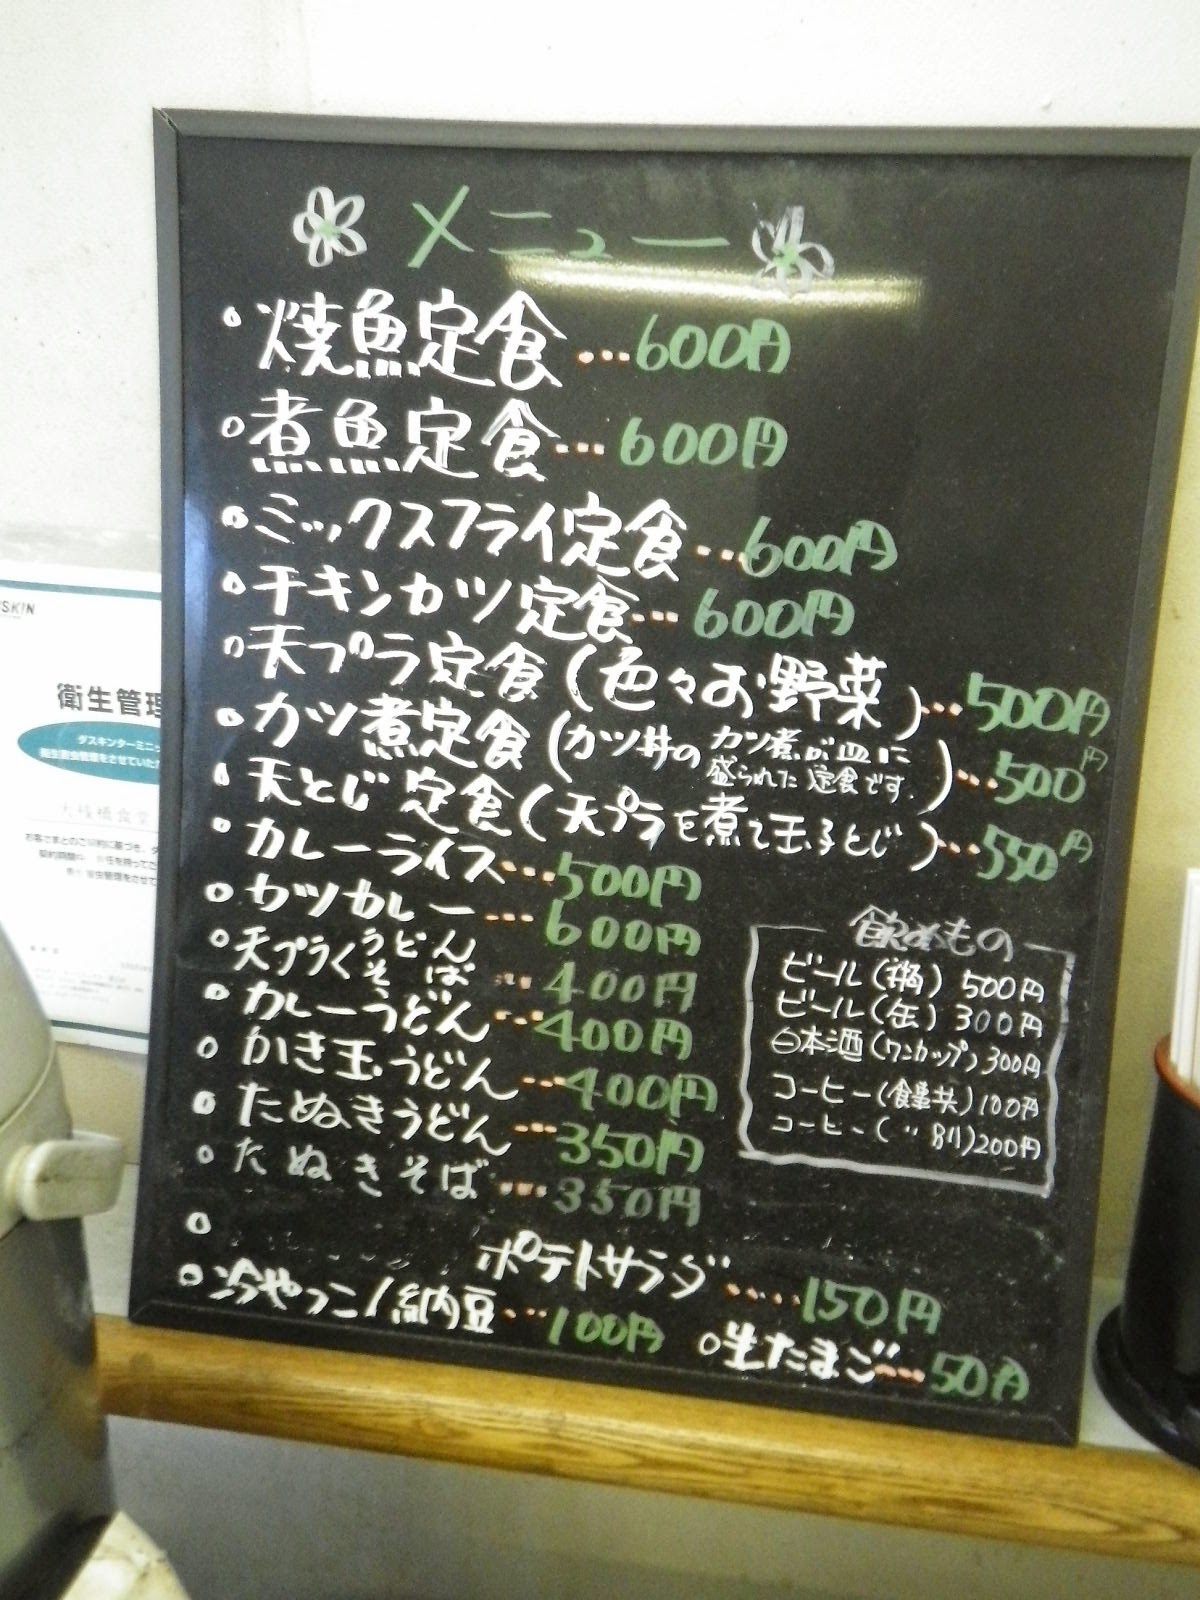 メニュー
焼魚定食…600円
煮魚定食…600円
ミックスフライ定食…600円
チキンカツ定食…600円
天プラ定食(色々お野菜)…500円
カツ煮定食(カツ丼のカツ煮が皿に盛られた定食です.)…500円
天とじ定食(天プラを煮て玉子とじ)…550円
カレーライス…500円
カツカレー…600円
天プラ うどん そば …400円
カレーうどん…400円
かき玉うどん…400円
たぬきうどん…350円
たぬきそば…350円
ポテトサラダ……150円
冷やっこ/納豆…100円 生たまご…50円
飲みもの
ビール(瓶) 500円
ビール(缶) 300円
日本酒(ワンカップ)300円
コーヒー(食事共)100円
コーヒー(〃別)200円
SKIN
衛生管理
ダスキンターミニ
衛生害虫管理をさせていただ
大桟橋食堂